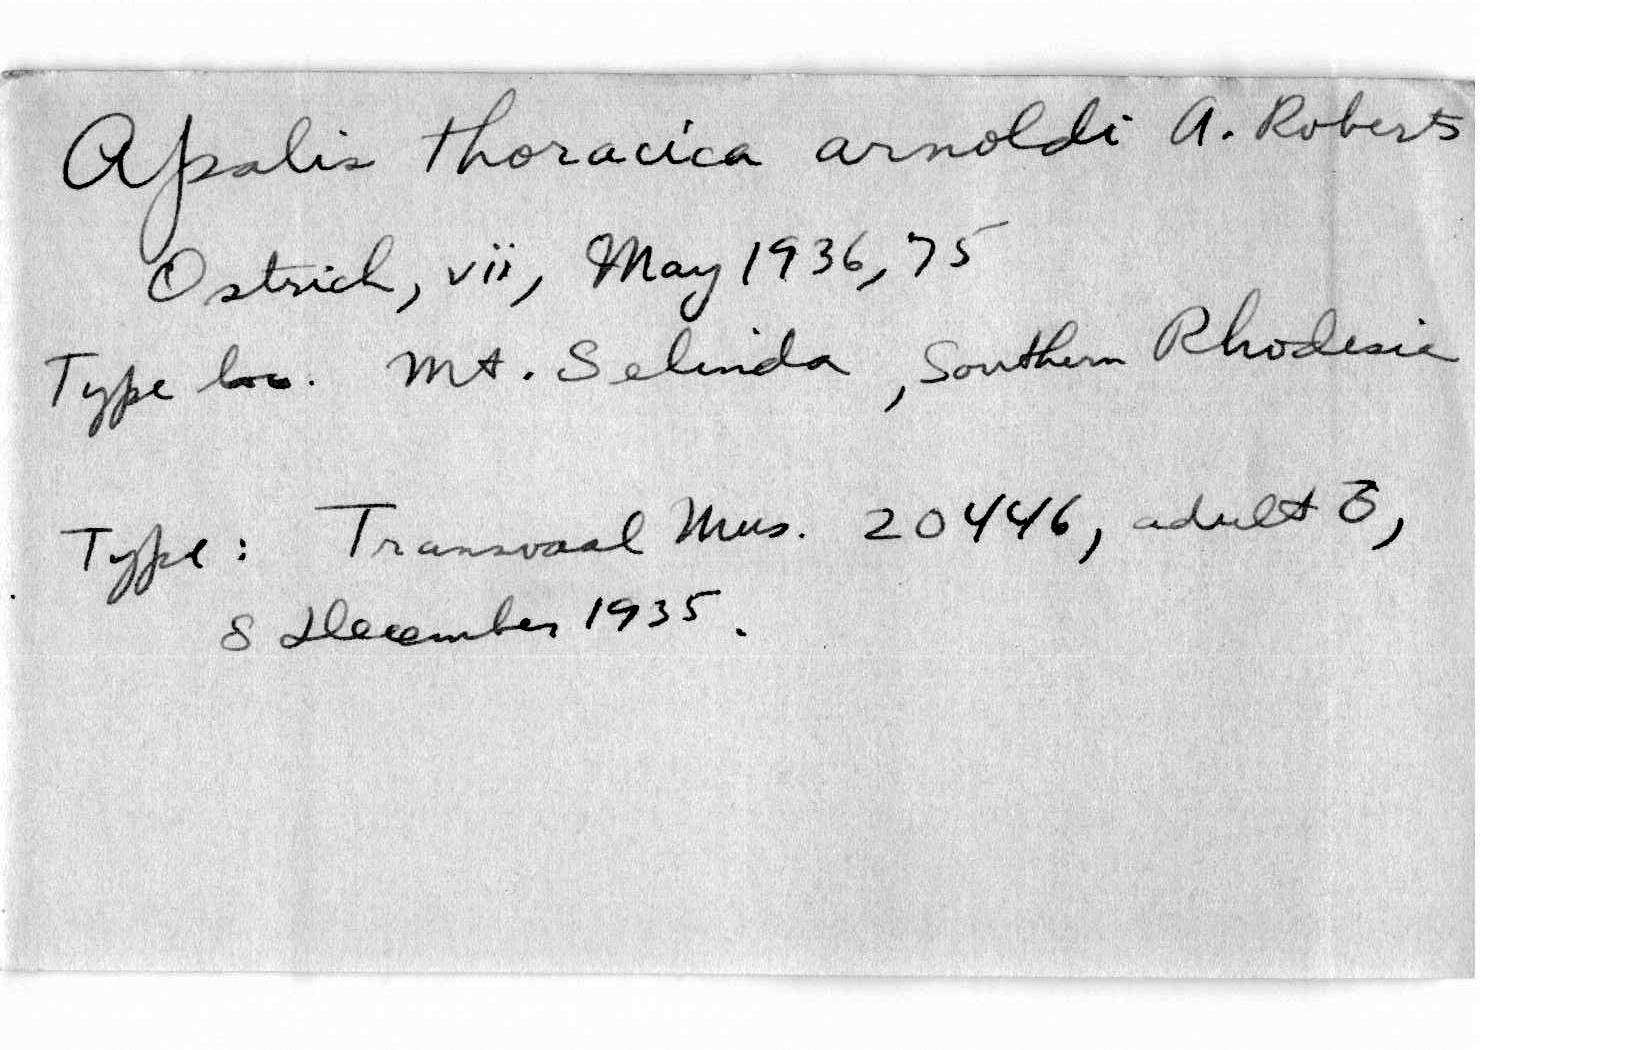 Apalis thoracica arnoldi A. Roberts
Ostrich, vii, May 1936, 75
Type loc. Mt. Selinda, Southern Rhodesia
Type: Transvaal Mus. 20446, adult ♂,
8 December 1935.